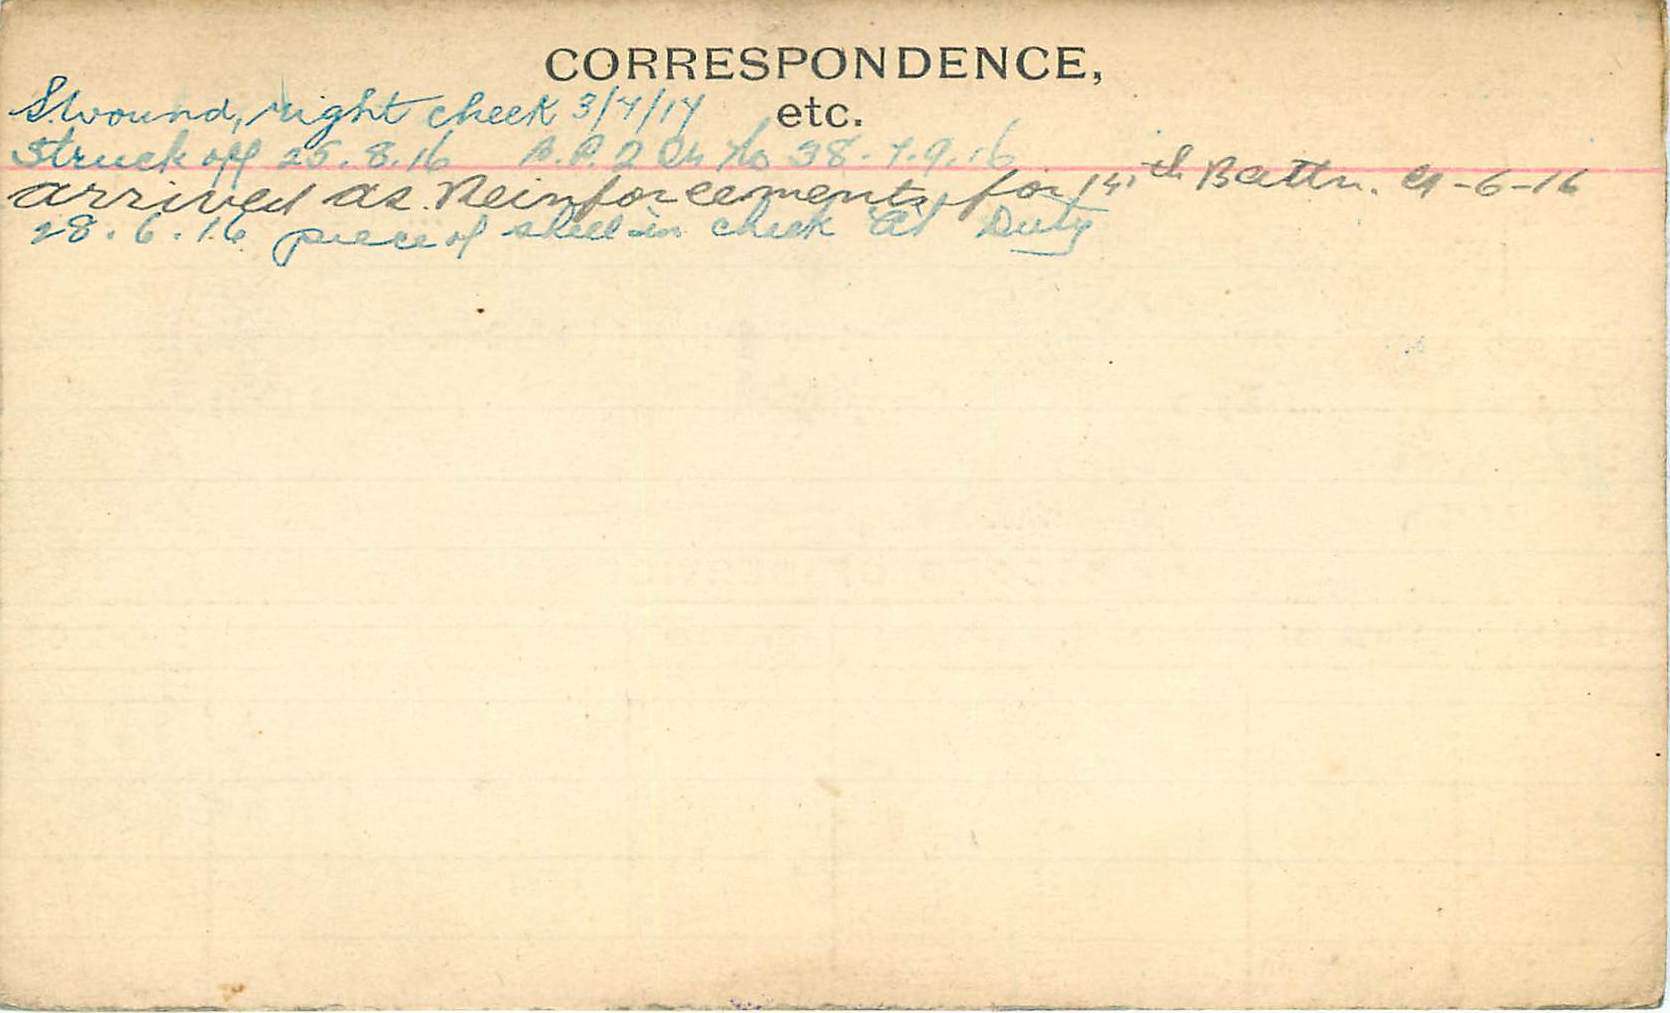 CORRESPONDENCE,
etc.
S. wound, right cheek 3/7/17
Struck off 25.8.16 No 38. 7.9.16
arrived as Reinforcements for 14th Battn. -6-16
28.6.16 piece of shell in cheek at Duty